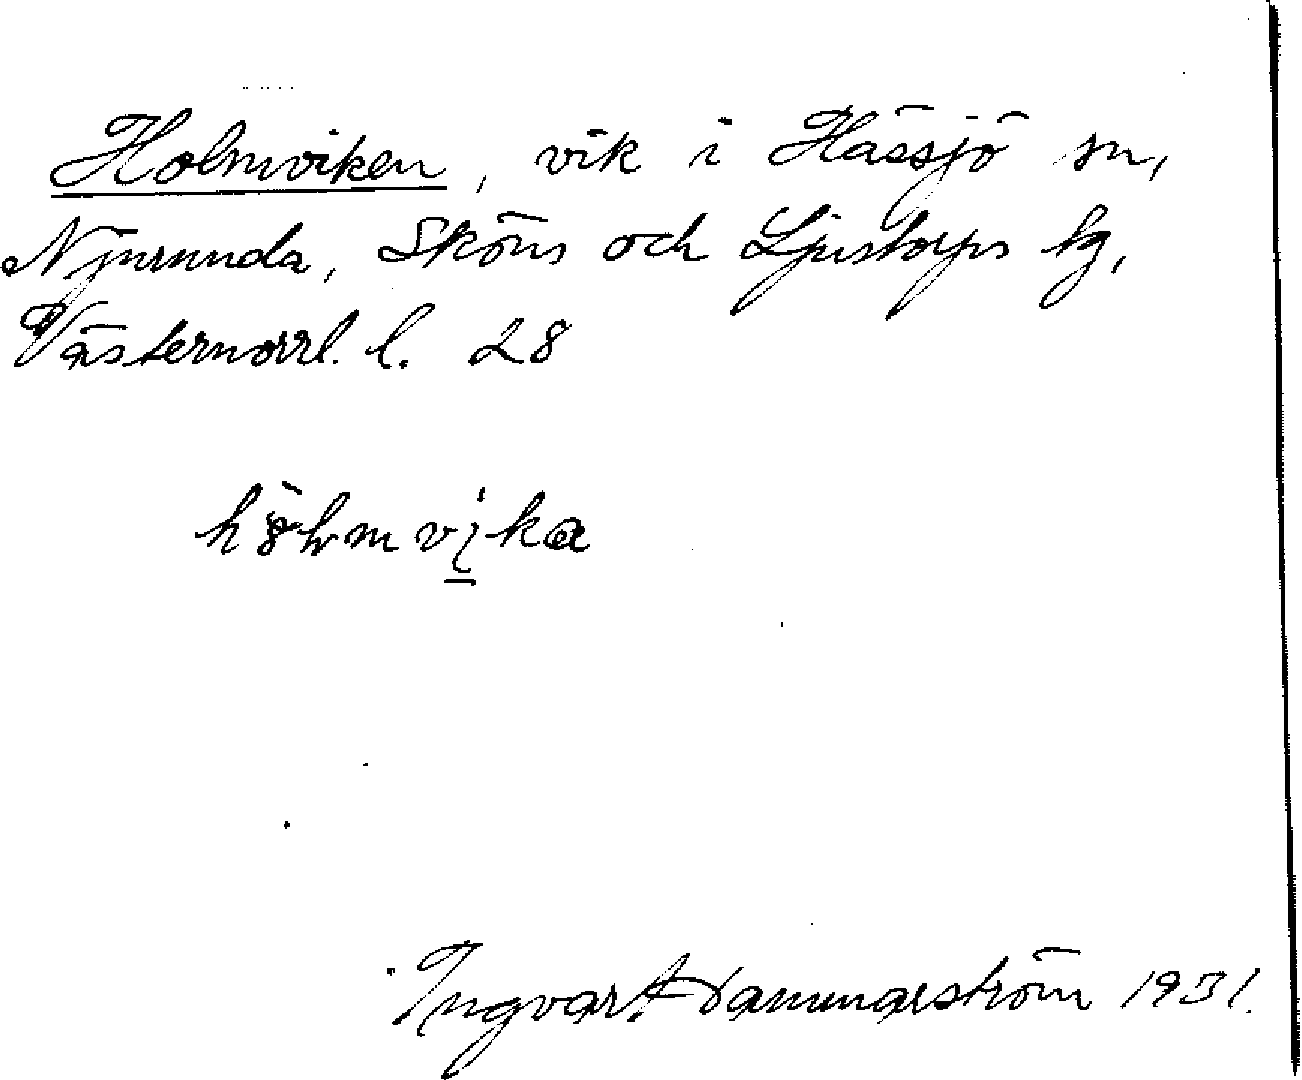 Holmviken, vik i Hässjö sn,
Njurunda, Sköns och Ljustorps tg,
Västernorrl. l. 28
Ingvar Hammarström 1931.